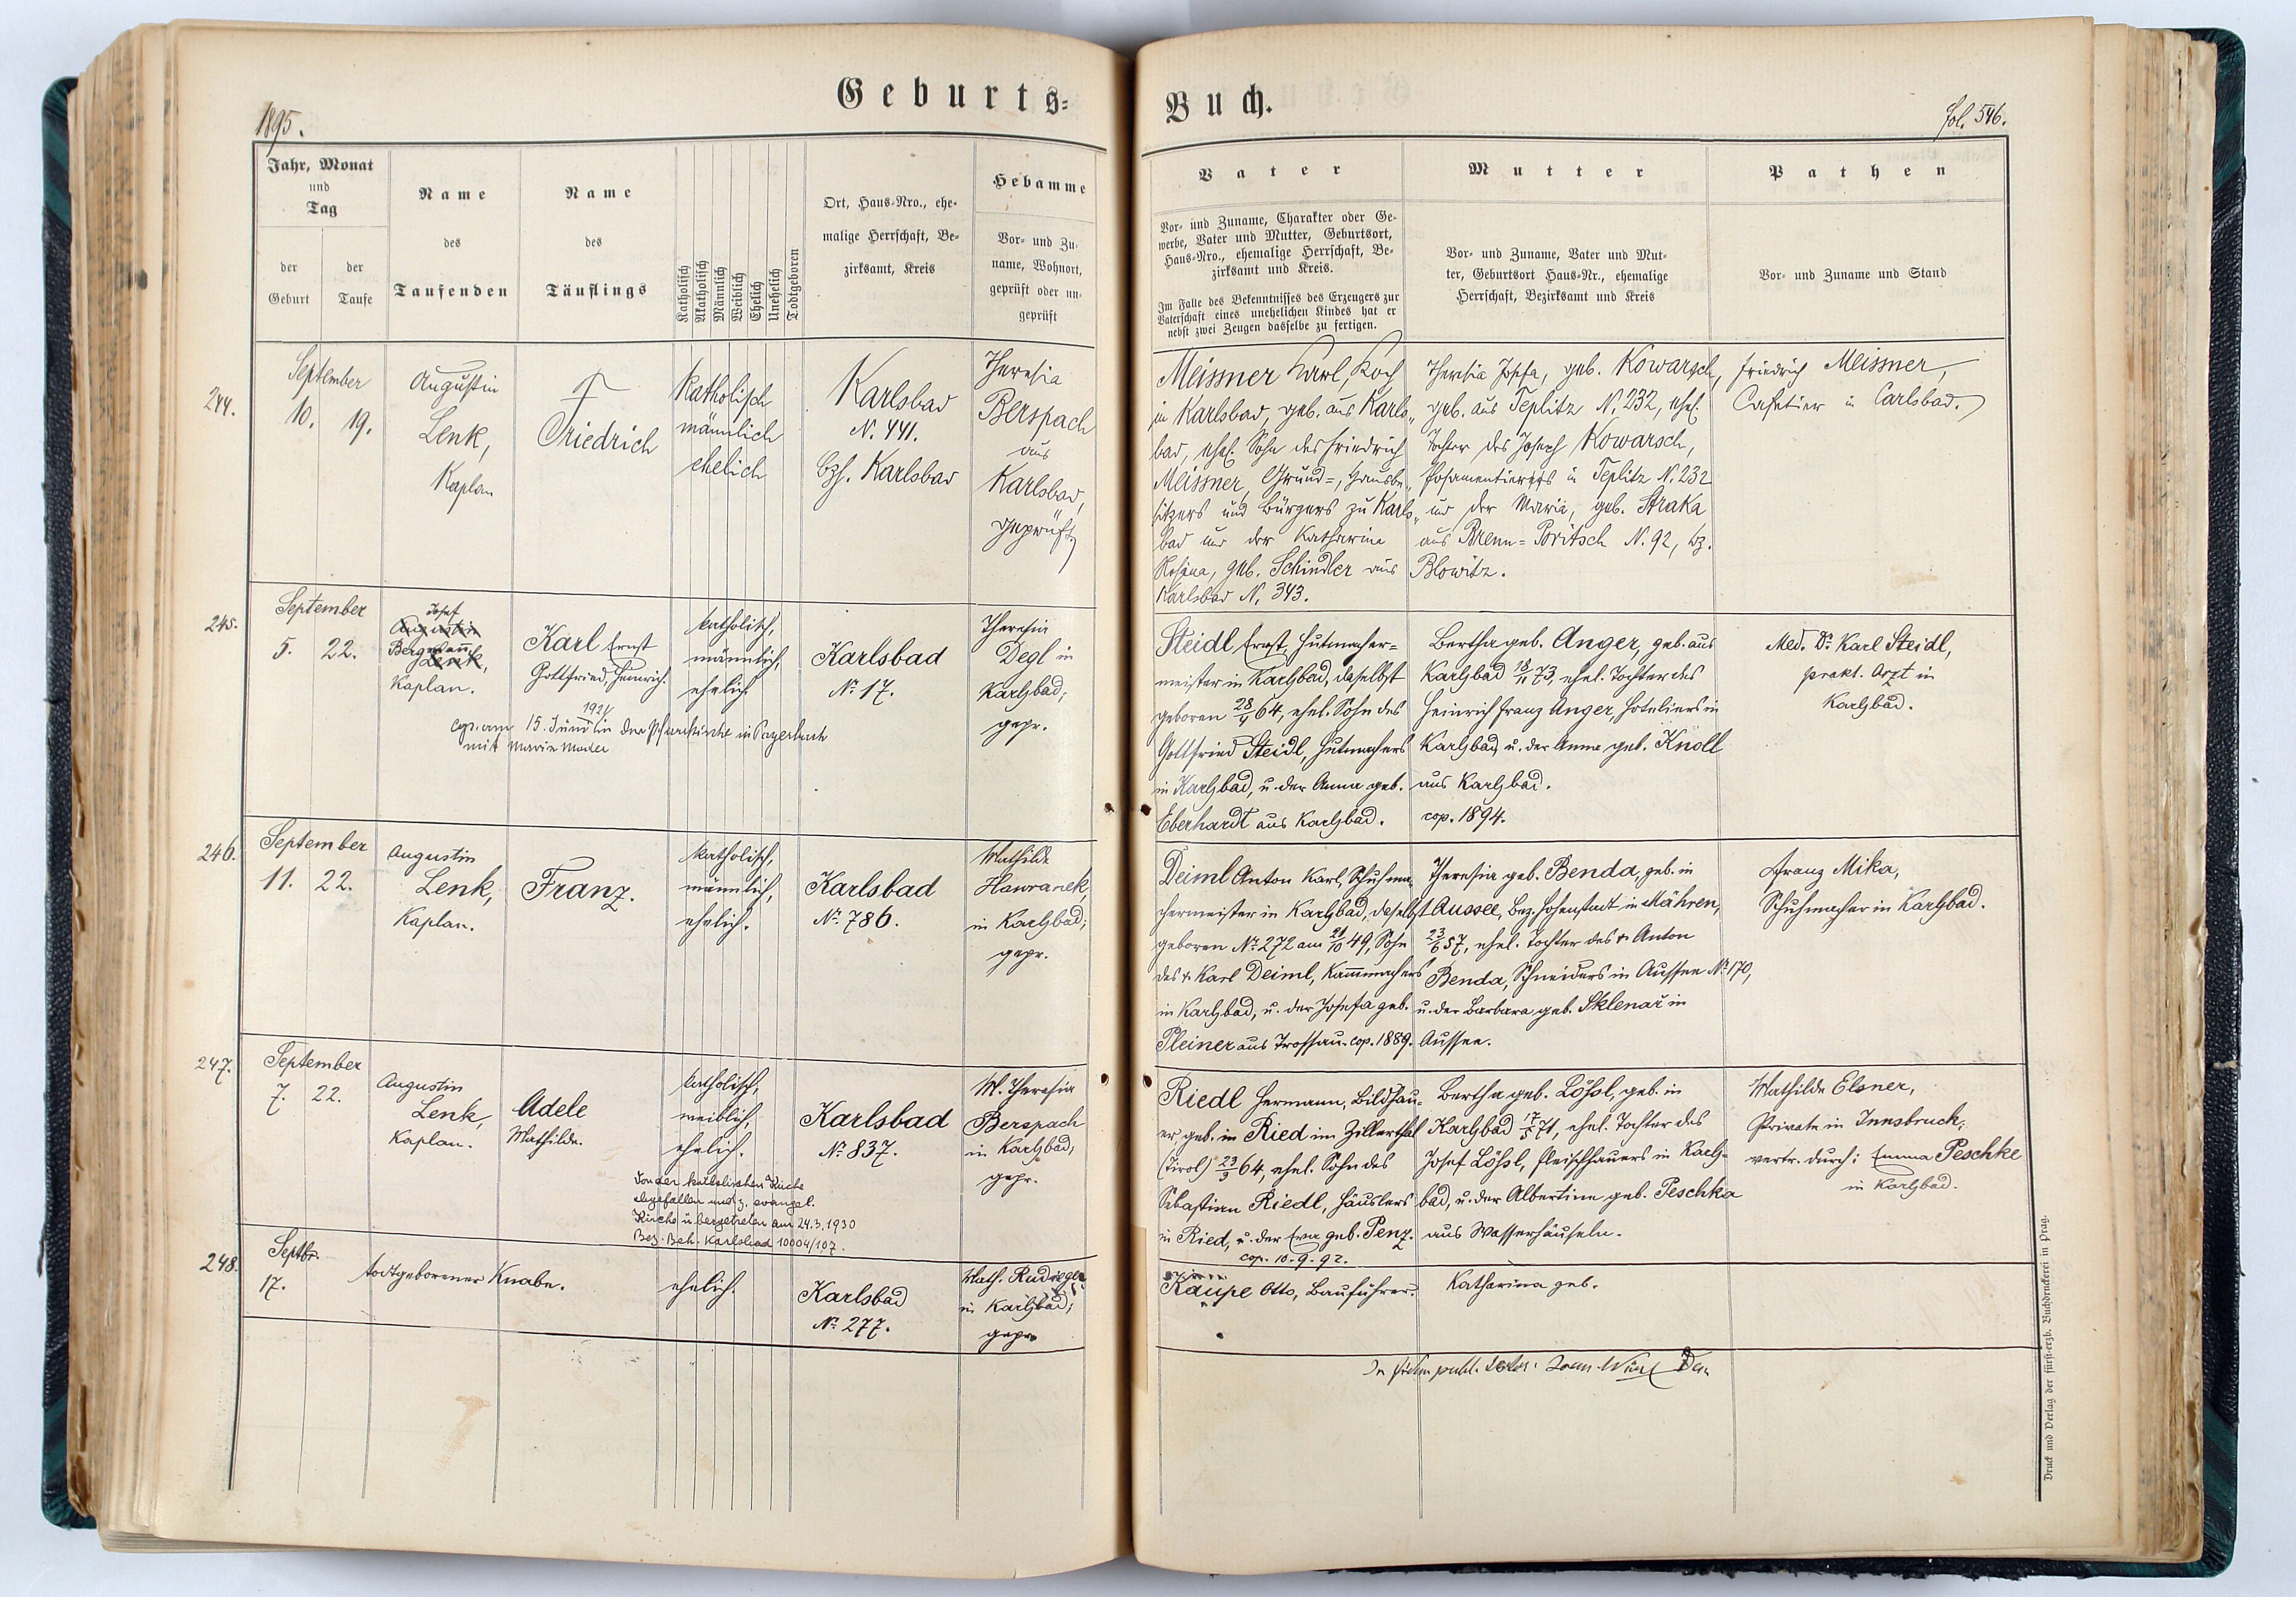 Geburts-
Buch.
1895.
fol. 546.
Jahr, Monat
und
Tag
der
Geburt
der
Taufe
Name
des
Taufenden
Name
des
Täuflings
Katholisch
Akatholisch
Männlich
Weiblich
Ehelich
Unehelich
Todtgeboren
Ort, Haus-Nro., ehe-
malige Herrschaft, Be-
zirksamt, Kreis
Hebamme
Vor- und Zu-
name, Wohnort,
geprüft oder un-
geprüft
Vater
Vor- und Zuname, Charakter oder Ge-
werbe, Vater und Mutter, Geburtsort,
Haus-Nro., ehemalige Herrschaft, Be-
zirksamt und Kreis.
Im Falle des Bekenntnisses des Erzeugers zur
Vaterschaft eines unehelichen Kindes hat er
nebst zwei Zeugen dasselbe zu fertigen.
Mutter
Vor- und Zuname, Vater und Mut-
ter, Geburtsort Haus-Nr., ehemalige
Herrschaft, Bezirksamt und Kreis
Pathen
Vor- und Zuname und Stand
244.
September
10. 19.
Augustin
Lenk,
Kaplan
†
Friedrich
Katholisch
männlich
ehelich
Karlsbad
N. 441.
bzh. Karlsbad
Theresia
Berspach
aus
Karlsbad,
geprüft
Meissner Karl, Koch
in Karlsbad, geb. aus Karls-
bad, ehel. Sohn des Friedrich
Meissner, Grund-, Hausbe-
sitzers und Bürgers zu Karls-
bad und der Katharina
Rosina, geb. Schindler aus
Karlsbad N. 343.
Theresia Josefa, geb. Kowarsch,
geb. aus Teplitz N. 232, ehel.
Tochter des Joseph Kowarsch,
Posamentierers in Teplitz N. 232
und der Maria, geb. Straka
aus Brenn-Poritsch N. 92, bz.
Blowitz.
Friedrich Meissner,
Cafetier in Carlsbad.
245.
September
5. 22.
Josef
Augustin
Bergmann
Lenk,
Kaplan.
Karl Ernst
Gottfried, Heinrich.
katholisch,
männlich,
ehelich
Karlsbad
Nr. 17.
Theresia
Degl in
Karlsbad;
gepr.
1921
cop. am 15. Juni in der Pfarrkirche in Payerbach
mit Maria Mader
Steidl Ernst, Hutmacher-
meister in Karlsbad, daselbst
geboren 28/4 64, ehel. Sohn des
Gottfried Steidl, Hutmachers
in Karlsbad, u. der Anna geb.
Eberhardt aus Karlsbad.
Bertha geb. Anger, geb. aus
Karlsbad 18/11 73, ehel. Tochter des
Heinrich Franz Anger, Hoteliers in
Karlsbad, u. der Anna geb. Knoll
aus Karlsbad.
cop. 1894.
Med. Dr. Karl Steidl,
prakt. Arzt in
Karlsbad.
246.
September
11. 22.
Augustin
Lenk,
Kaplan.
Franz.
katholisch,
männlich,
ehelich.
Karlsbad
Nr. 786.
Mathilde
Hawranek,
in Karlsbad;
gepr.
Deiml Anton Karl, Schuhma-
chermeister in Karlsbad, daselbst
geboren Nr. 272 am 21/10 49, Sohn
des † Karl Deiml, Kammmachers
in Karlsbad, u. der Josefa geb.
Pleiner aus Trossau. cop. 1889.
Theresia geb. Benda, geb. in
Aussee, Bez. Hohenstadt in Mähren,
23/6 57, ehel. Tochter des † Anton
Benda, Schneiders in Aussee Nr. 170,
u. der Barbara geb. Sklenař in
Aussee.
Franz Mika,
Schuhmacher in Karlsbad.
247.
September
7. 22.
Augustin
Lenk,
Kaplan.
Adele
Mathilde.
katholisch,
weiblich,
ehelich.
Karlsbad
Nr. 837.
M. Theresia
Berspach
in Karlsbad;
gepr.
Von der katholischen Kirche
abgefallen und z. evangel.
Kirche übergetreten am 24.3.1930
Bez. Beh. Karlsbad 10004/107.
Riedl Hermann, Bildhau-
er, geb. in Ried im Zillerthal
(Tirol) 23/3 64, ehel. Sohn des
Sebastian Riedl, Häuslers
in Ried, u. der Eva geb. Penz.
cop. 10. 9. 92.
Bertha geb. Lößl, geb. in
Karlsbad 17/5 71, ehel. Tochter des
Josef Lößl, Fleischhauers in Karls-
bad, u. der Albertine geb. Peschka
aus Wasserhäuseln.
Mathilde Elsner,
Private in Innsbruck;
vertr. durch: Emma Peschke
in Karlsbad.
248.
Septbr.
17.
todtgeborener Knabe.
ehelich.
Karlsbad
Nr. 277.
Math. Rudinger
in Karlsbad;
gepr.
Kaupe Otto, Bauführer.
Katharina geb.
Druck und Verlag der fürst-erzb. Buchdruckerei in Prag.